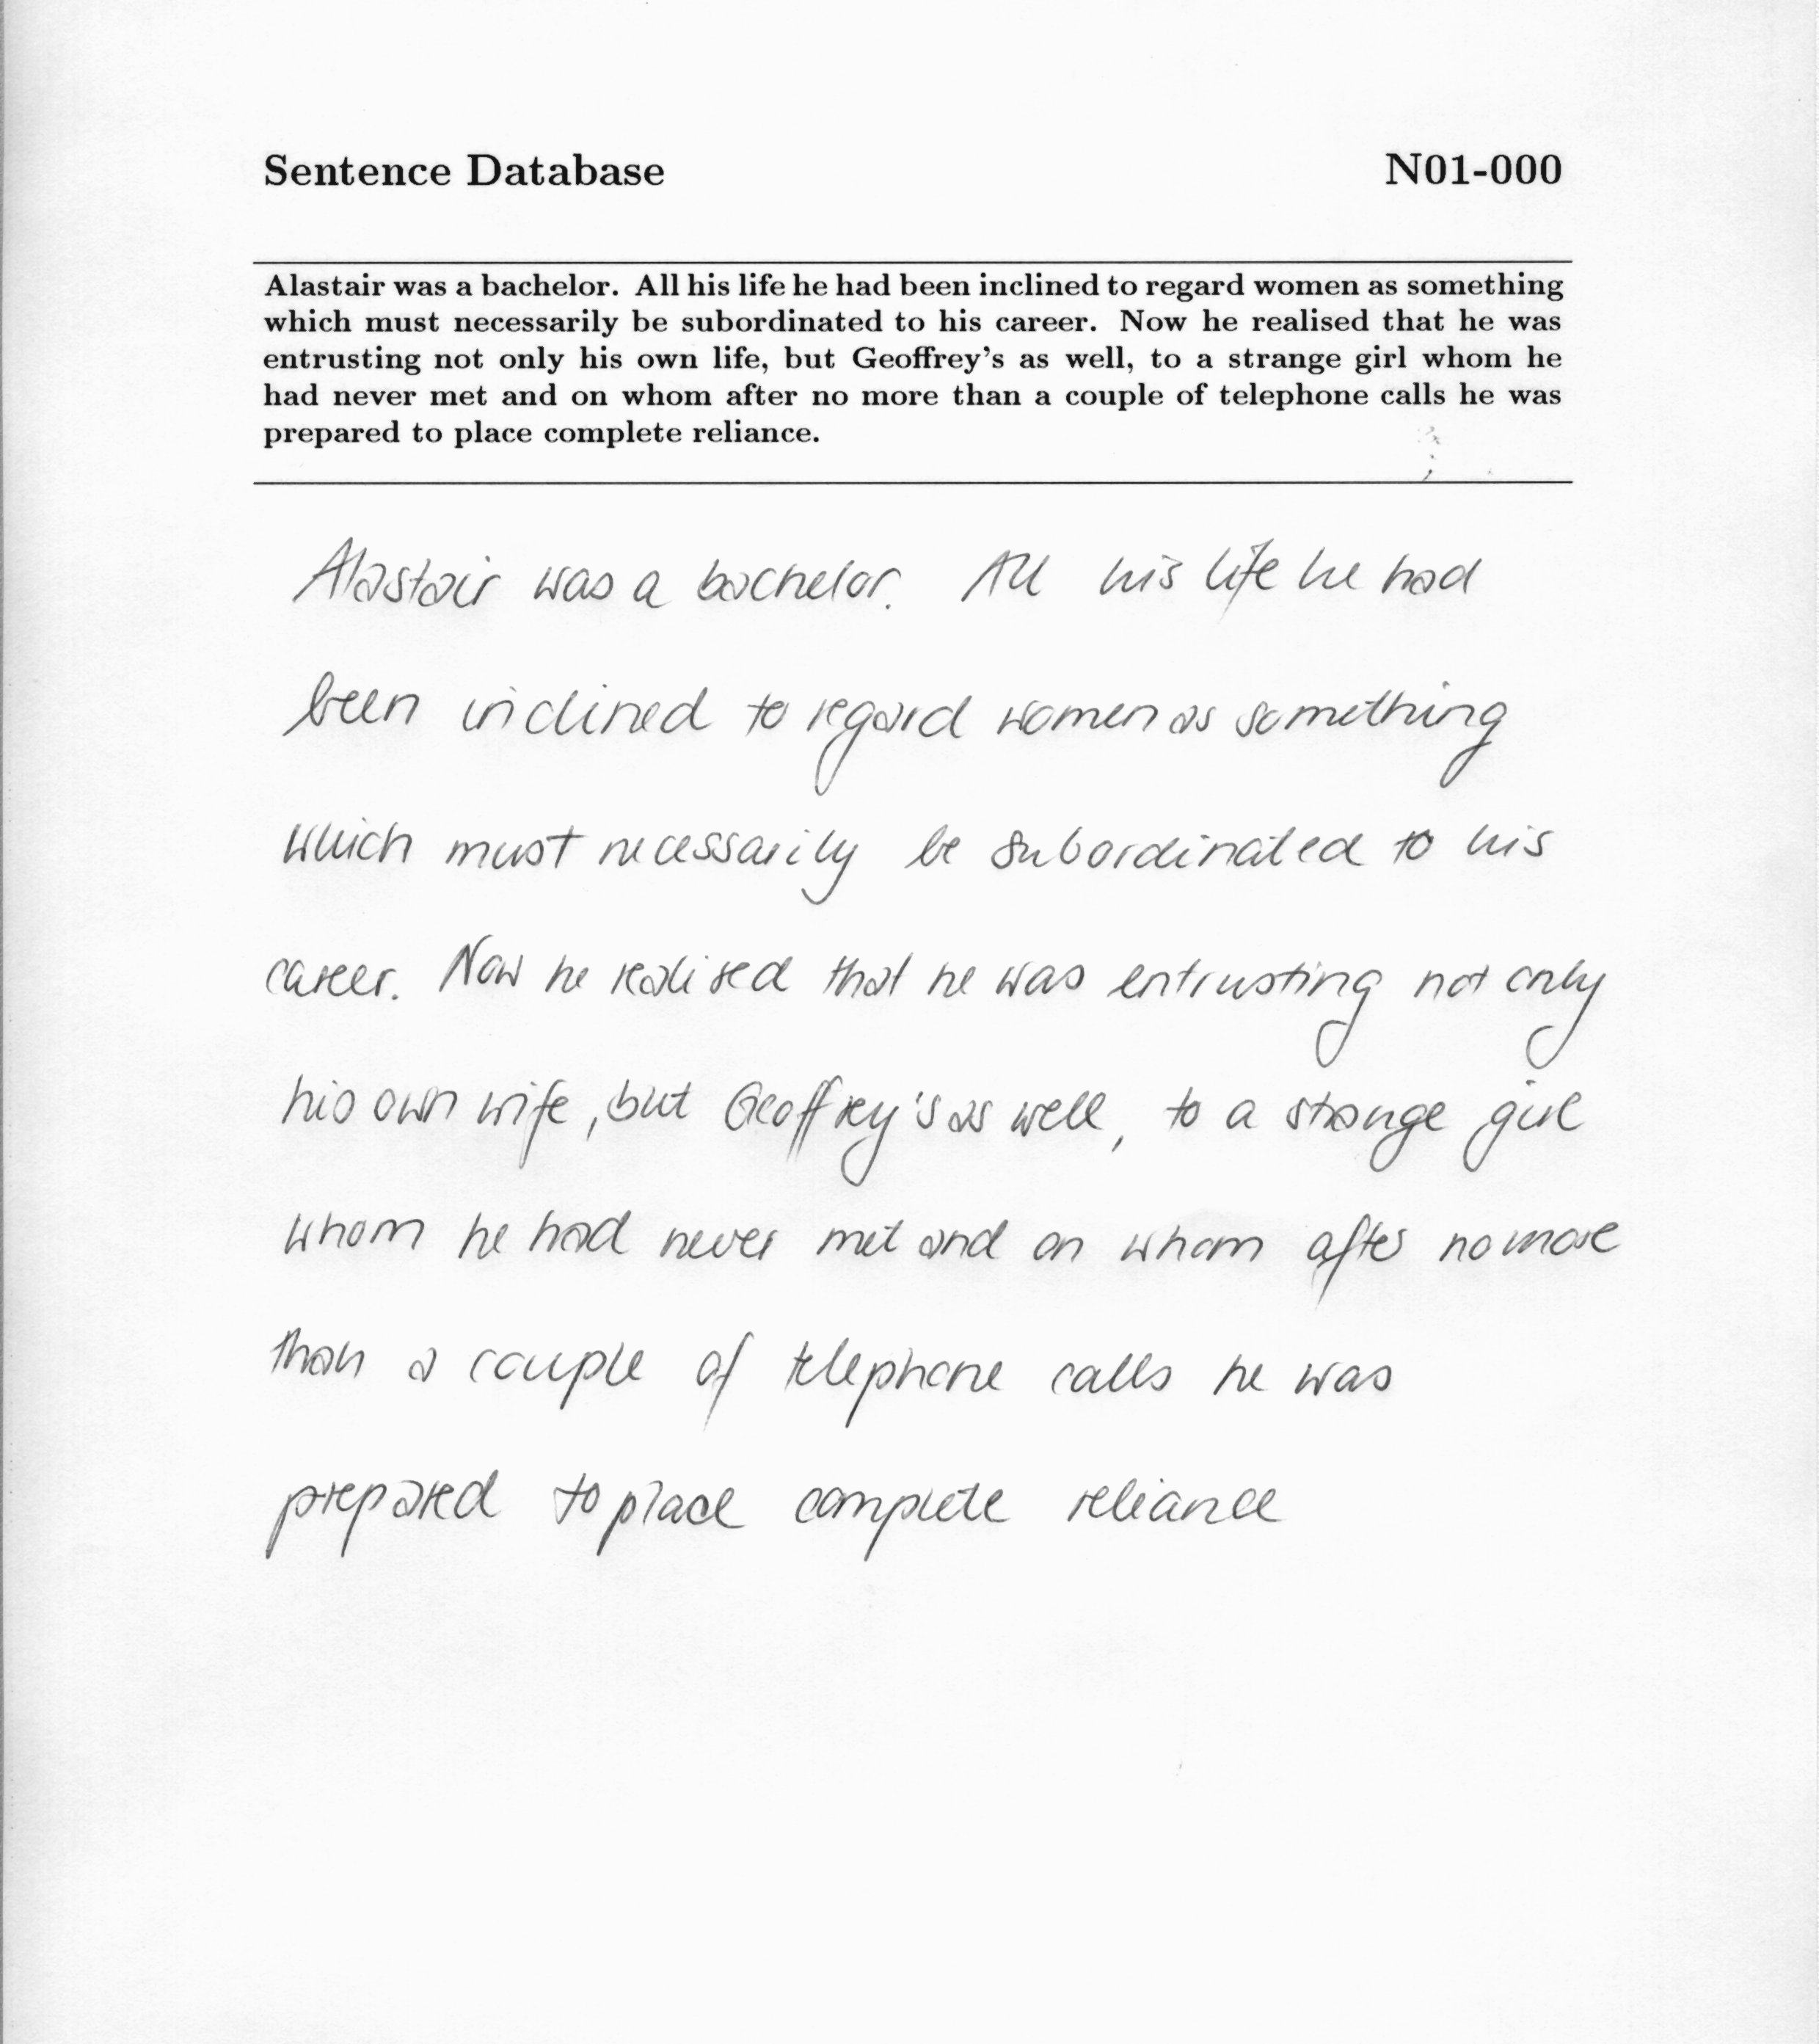 Sentence Database N01-000
Alastair was a bachelor. All his life he had been inclined to regard women as something
which must necessarily be subordinated to his career. Now he realised that he was
entrusting not only his own life, but Geoffrey's as well, to a strange girl whom he
had never met and on whom after no more than a couple of telephone calls he was
prepared to place complete reliance.
Alastair was a bachelor. All his life he had
been inclined to regard women as something
which must necessarily be subordinated to his
career. Now he realised that he was entrusting not only
his own wife, but Geoffrey's as well, to a strange girl
whom he had never met and on whom after no more
than a couple of telephone calls he was
prepared to place complete reliance